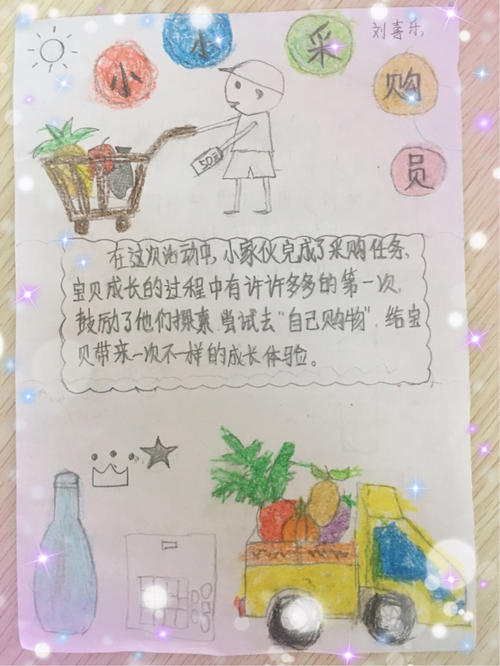 刘喜乐
小小采购员
50元
在这次活动中,小家伙完成了采购任务、
宝贝成长的过程中有许许多多的第一次,
鼓励了他们探索、尝试去“自己购物”,给宝
贝带来一次不一样的成长体验。